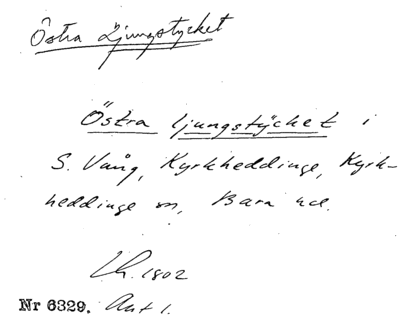 Östra Ljungstycket
Östra ljungstycket i
S. Vång, Kyrkheddinge, Kyrk-
heddinge sn, Bara hd.
Lh. 1802
Nr 6329. Akt 1.